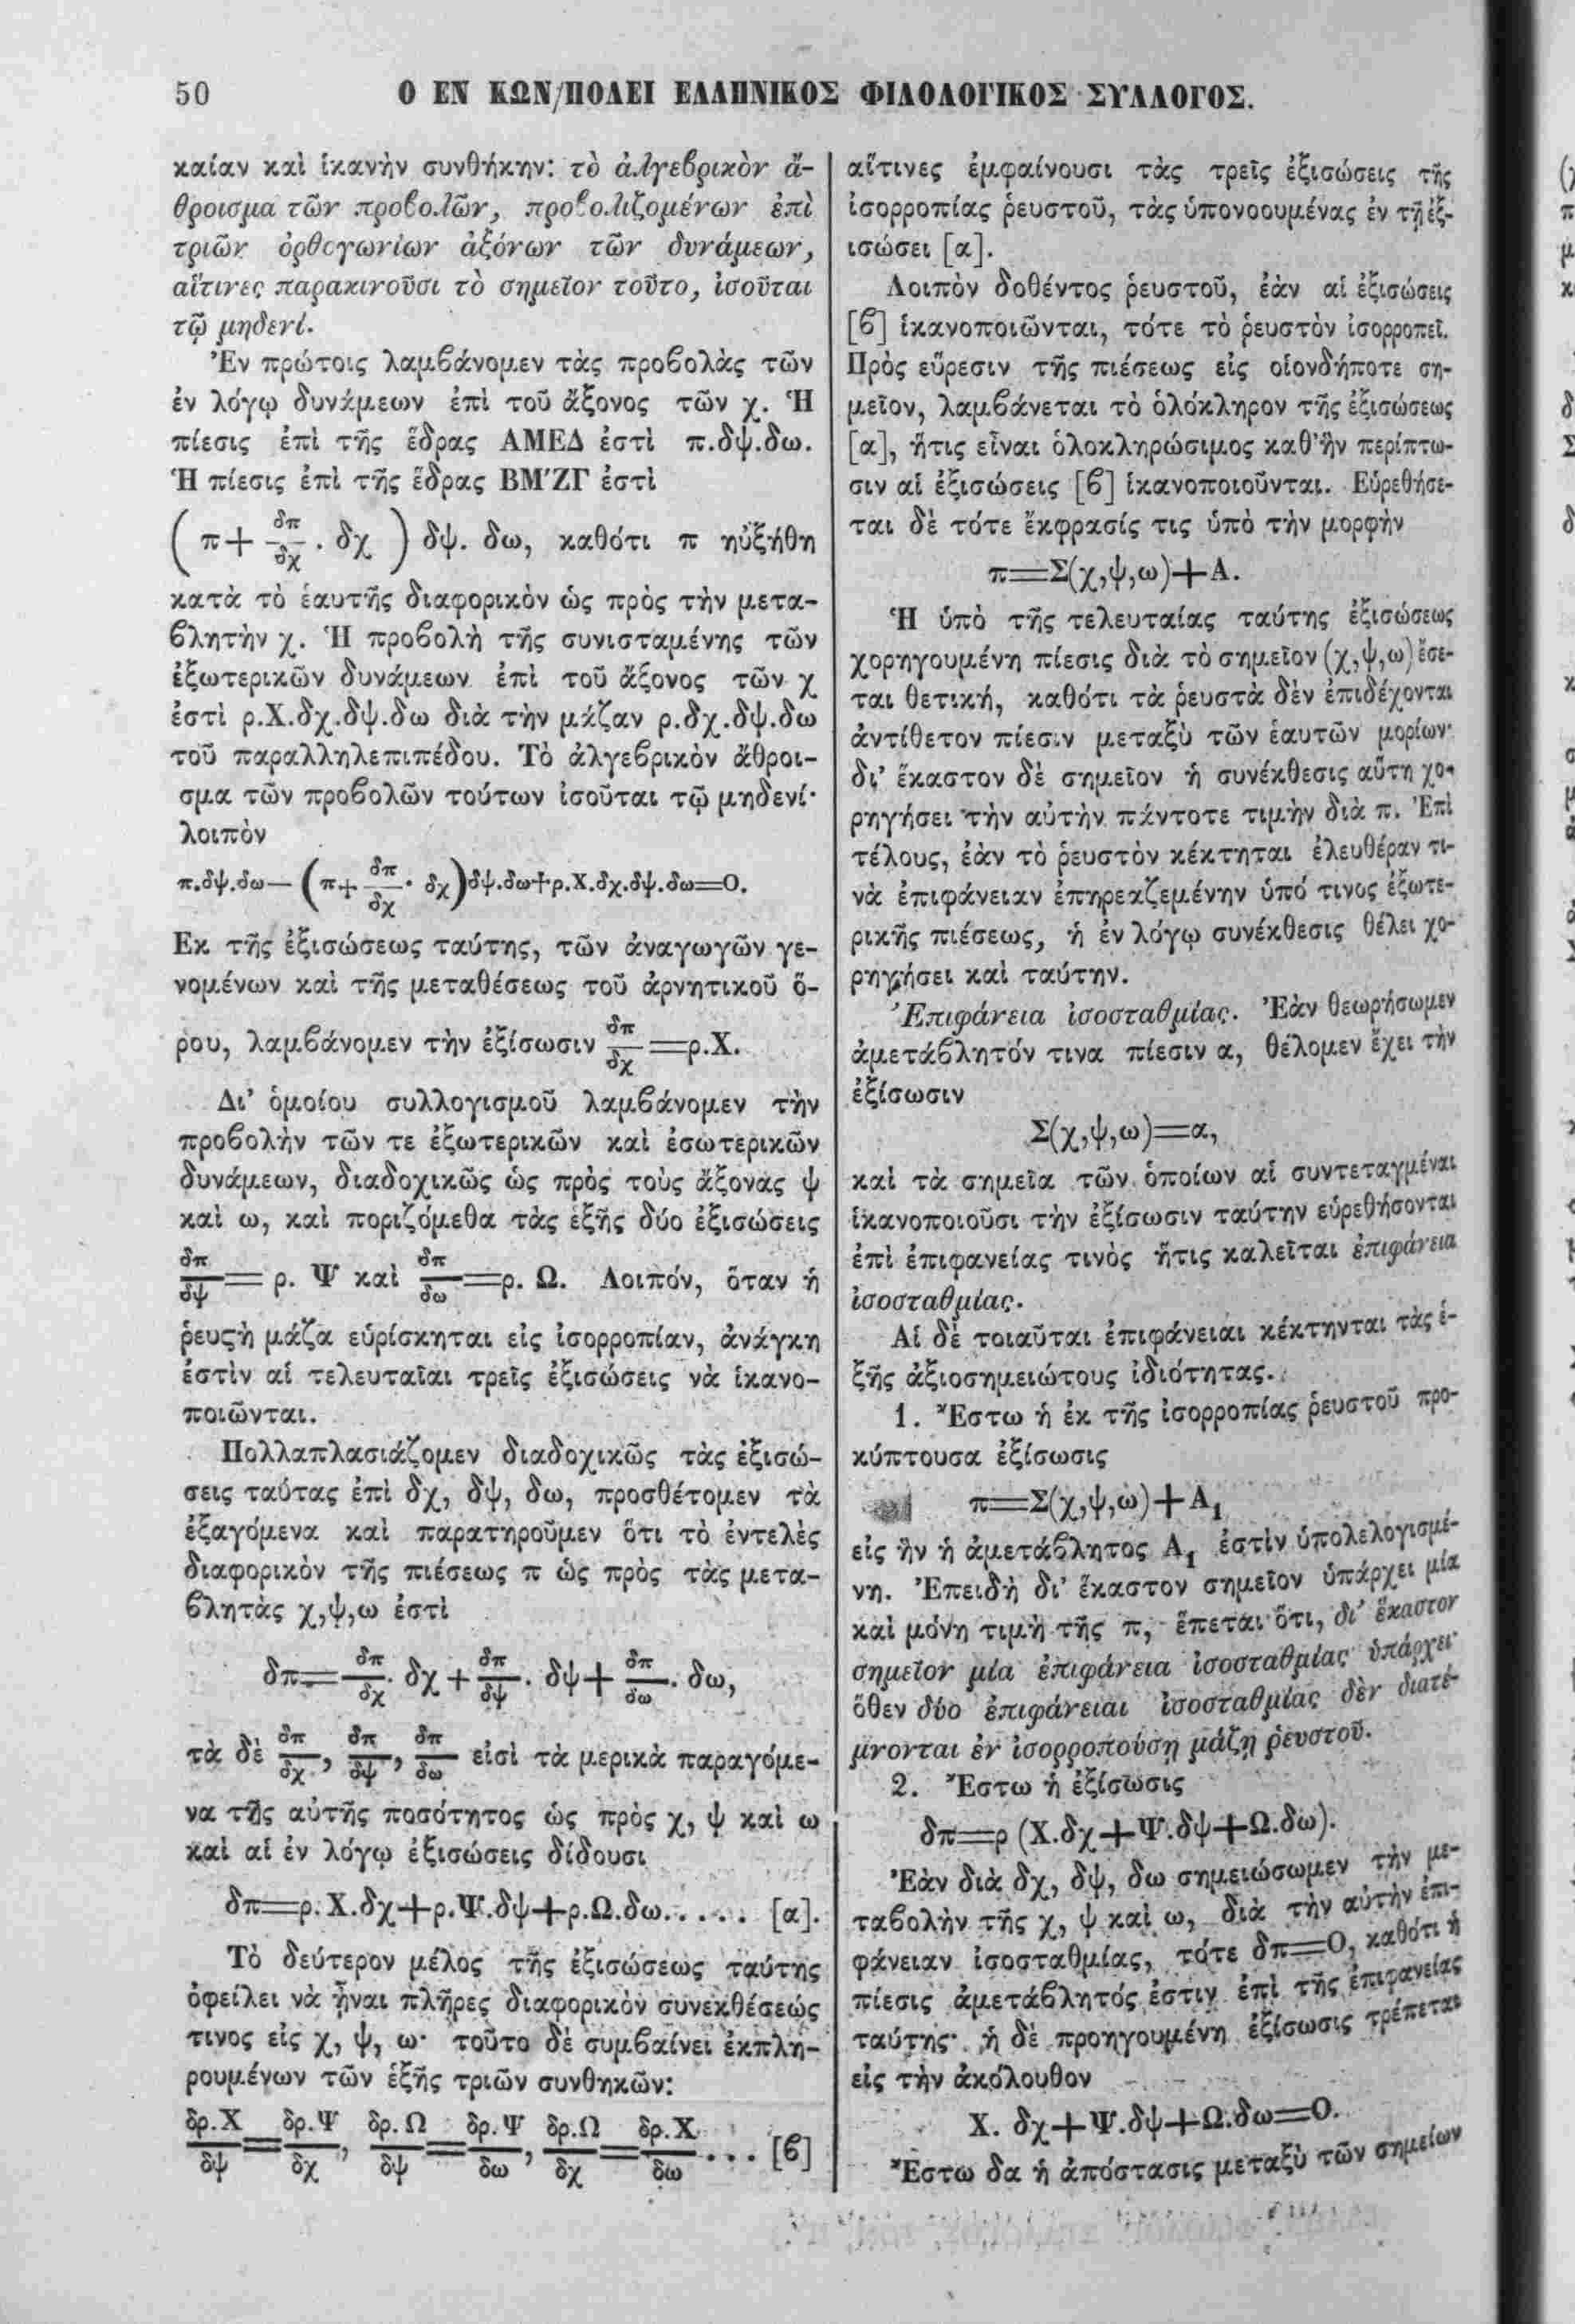 50 Ο ΕΝ ΚΩΝ/ΠΟΛΕΙ ΕΛΛΗΝΙΚΟΣ ΦΙΛΟΛΟΓΙΚΟΣ ΣΥΛΛΟΓΟΣ.
καίαν καὶ ἱκανὴν συνθήκην: τὸ ἀλγεβρικὸν ἄ-
θροισμα τῶν προβολῶν, προβολιζομένων ἐπὶ
τριῶν ὀρθογωνίων ἀξόνων τῶν δυνάμεων,
αἵτινες παρακινοῦσι τὸ σημεῖον τοῦτο, ἰσοῦται
τῷ μηδενί.
Ἐν πρώτοις λαμβάνομεν τὰς προβολὰς τῶν
ἐν λόγῳ δυνάμεων ἐπὶ τοῦ ἄξονος τῶν χ. Ἡ
πίεσις ἐπὶ τῆς ἕδρας ΑΜΕΔ ἐστὶ π.δψ.δω.
Ἡ πίεσις ἐπὶ τῆς ἕδρας ΒΜ'ΖΓ ἐστὶ
( π+ δπ/δχ . δχ ) δψ. δω, καθότι π ηὐξήθη
κατὰ τὸ ἑαυτῆς διαφορικὸν ὡς πρὸς τὴν μετα-
βλητὴν χ. Ἡ προβολὴ τῆς συνισταμένης τῶν
ἐξωτερικῶν δυνάμεων ἐπὶ τοῦ ἄξονος τῶν χ
ἐστὶ ρ.Χ.δχ.δψ.δω διὰ τὴν μάζαν ρ.δχ.δψ.δω
τοῦ παραλληλεπιπέδου. Τὸ ἀλγεβρικὸν ἄθροι-
σμα τῶν προβολῶν τούτων ἰσοῦται τῷ μηδενί·
λοιπὸν
π.δψ.δω— (π+ δπ/δχ . δχ)δψ.δω+ρ.Χ.δχ.δψ.δω=Ο.
Εκ τῆς ἐξισώσεως ταύτης, τῶν ἀναγωγῶν γε-
νομένων καὶ τῆς μεταθέσεως τοῦ ἀρνητικοῦ ὅ-
ρου, λαμβάνομεν τὴν ἐξίσωσιν δπ/δχ =ρ.Χ.
Δι' ὁμοίου συλλογισμοῦ λαμβάνομεν τὴν
προβολὴν τῶν τε ἐξωτερικῶν καὶ ἐσωτερικῶν
δυνάμεων, διαδοχικῶς ὡς πρὸς τοὺς ἄξονας ψ
καὶ ω, καὶ ποριζόμεθα τὰς ἑξῆς δύο ἐξισώσεις
δπ/δψ = ρ. Ψ καὶ δπ/δω =ρ. Ω. Λοιπόν, ὅταν ἡ
ῥευςὴ μάζα εὑρίσκηται εἰς ἰσορροπίαν, ἀνάγκη
ἐστὶν αἱ τελευταῖαι τρεῖς ἐξισώσεις νὰ ἱκανο-
ποιῶνται.
Πολλαπλασιάζομεν διαδοχικῶς τὰς ἐξισώ-
σεις ταύτας ἐπὶ δχ, δψ, δω, προσθέτομεν τὰ
ἐξαγόμενα καὶ παρατηροῦμεν ὅτι τὸ ἐντελὲς
διαφορικὸν τῆς πιέσεως π ὡς πρὸς τὰς μετα-
βλητὰς χ,ψ,ω ἐστὶ
δπ= δπ/δχ . δχ + δπ/δψ . δψ + δπ/δω . δω,
τὰ δὲ δπ/δχ , δπ/δψ , δπ/δω εἰσὶ τὰ μερικὰ παραγόμε-
να τῆς αὐτῆς ποσότητος ὡς πρὸς χ, ψ καὶ ω
καὶ αἱ ἐν λόγῳ ἐξισώσεις δίδουσι
δπ=ρ.Χ.δχ+ρ.Ψ.δψ+ρ.Ω.δω..... [α].
Τὸ δεύτερον μέλος τῆς ἐξισώσεως ταύτης
ὀφείλει νὰ ἦναι πλῆρες διαφορικὸν συνεκθέσεώς
τινος εἰς χ, ψ, ω· τοῦτο δὲ συμβαίνει ἐκπλη-
ρουμένων τῶν ἑξῆς τριῶν συνθηκῶν:
δρ.Χ/δψ = δρ.Ψ/δχ , δρ.Ω/δψ = δρ.Ψ/δω , δρ.Ω/δχ = δρ.Χ/δω ... [β]
αἵτινες ἐμφαίνουσι τὰς τρεῖς ἐξισώσεις τῆς
ἰσορροπίας ῥευστοῦ, τὰς ὑπονοουμένας ἐν τῇ ἐξ-
ισώσει [α].
Λοιπὸν δοθέντος ῥευστοῦ, ἐὰν αἱ ἐξισώσεις
[β] ἱκανοποιῶνται, τότε τὸ ῥευστὸν ἰσορροπεῖ.
Πρὸς εὕρεσιν τῆς πιέσεως εἰς οἱονδήποτε ση-
μεῖον, λαμβάνεται τὸ ὁλόκληρον τῆς ἐξισώσεως
[α], ἥτις εἶναι ὁλοκληρώσιμος καθ'ἣν περίπτω-
σιν αἱ ἐξισώσεις [β] ἱκανοποιοῦνται. Εὑρεθήσε-
ται δὲ τότε ἔκφρασίς τις ὑπὸ τὴν μορφὴν
π=Σ(χ,ψ,ω)+Α.
Ἡ ὑπὸ τῆς τελευταίας ταύτης ἐξισώσεως
χορηγουμένη πίεσις διὰ τὸ σημεῖον (χ,ψ,ω) ἔσε-
ται θετική, καθότι τὰ ῥευστὰ δὲν ἐπιδέχονται
ἀντίθετον πίεσιν μεταξὺ τῶν ἑαυτῶν μορίων·
δι' ἕκαστον δὲ σημεῖον ἡ συνέκθεσις αὕτη χο-
ρηγήσει τὴν αὐτὴν πάντοτε τιμὴν διὰ π. Ἐπὶ
τέλους, ἐὰν τὸ ῥευστὸν κέκτηται ἐλευθέραν τι-
νὰ ἐπιφάνειαν ἐπηρεαζεμένην ὑπό τινος ἐξωτε-
ρικῆς πιέσεως, ἡ ἐν λόγῳ συνέκθεσις θέλει χο-
ρηγήσει καὶ ταύτην.
Ἐπιφάνεια ἰσοσταθμίας. Ἐὰν θεωρήσωμεν
ἀμετάβλητόν τινα πίεσιν α, θέλομεν ἔχει τὴν
ἐξίσωσιν
Σ(χ,ψ,ω)=α,
καὶ τὰ σημεῖα τῶν ὁποίων αἱ συντεταγμέναι
ἱκανοποιοῦσι τὴν ἐξίσωσιν ταύτην εὑρεθήσονται
ἐπὶ ἐπιφανείας τινὸς ἥτις καλεῖται ἐπιφάνεια
ἰσοσταθμίας.
Αἱ δὲ τοιαῦται ἐπιφάνειαι κέκτηνται τὰς ἑ-
ξῆς ἀξιοσημειώτους ἰδιότητας.
1. Ἔστω ἡ ἐκ τῆς ἰσορροπίας ῥευστοῦ προ-
κύπτουσα ἐξίσωσις
π=Σ(χ,ψ,ω)+Α₁
εἰς ἣν ἡ ἀμετάβλητος Α₁ ἐστὶν ὑπολελογισμέ-
νη. Ἐπειδὴ δι' ἕκαστον σημεῖον ὑπάρχει μία
καὶ μόνη τιμὴ τῆς π, ἕπεται ὅτι, δι' ἕκαστον
σημεῖον μία ἐπιφάνεια ἰσοσταθμίας ὑπάρχει·
ὅθεν δύο ἐπιφάνειαι ἰσοσταθμίας δὲν διατέ-
μνονται ἐν ἰσορροπούσῃ μάζῃ ῥευστοῦ.
2. Ἔστω ἡ ἐξίσωσις
δπ=ρ (Χ.δχ+Ψ.δψ+Ω.δω).
Ἐὰν διὰ δχ, δψ, δω σημειώσωμεν τὴν με-
ταβολὴν τῆς χ, ψ καὶ ω, διὰ τὴν αὐτὴν ἐπι-
φάνειαν ἰσοσταθμίας, τότε δπ=Ο, καθότι ἡ
πίεσις ἀμετάβλητός ἐστιν ἐπὶ τῆς ἐπιφανείας
ταύτης· ἡ δὲ προηγουμένη ἐξίσωσις τρέπεται
εἰς τὴν ἀκόλουθον
Χ. δχ+Ψ.δψ+Ω.δω=Ο.
Ἔστω δα ἡ ἀπόστασις μεταξὺ τῶν σημείων